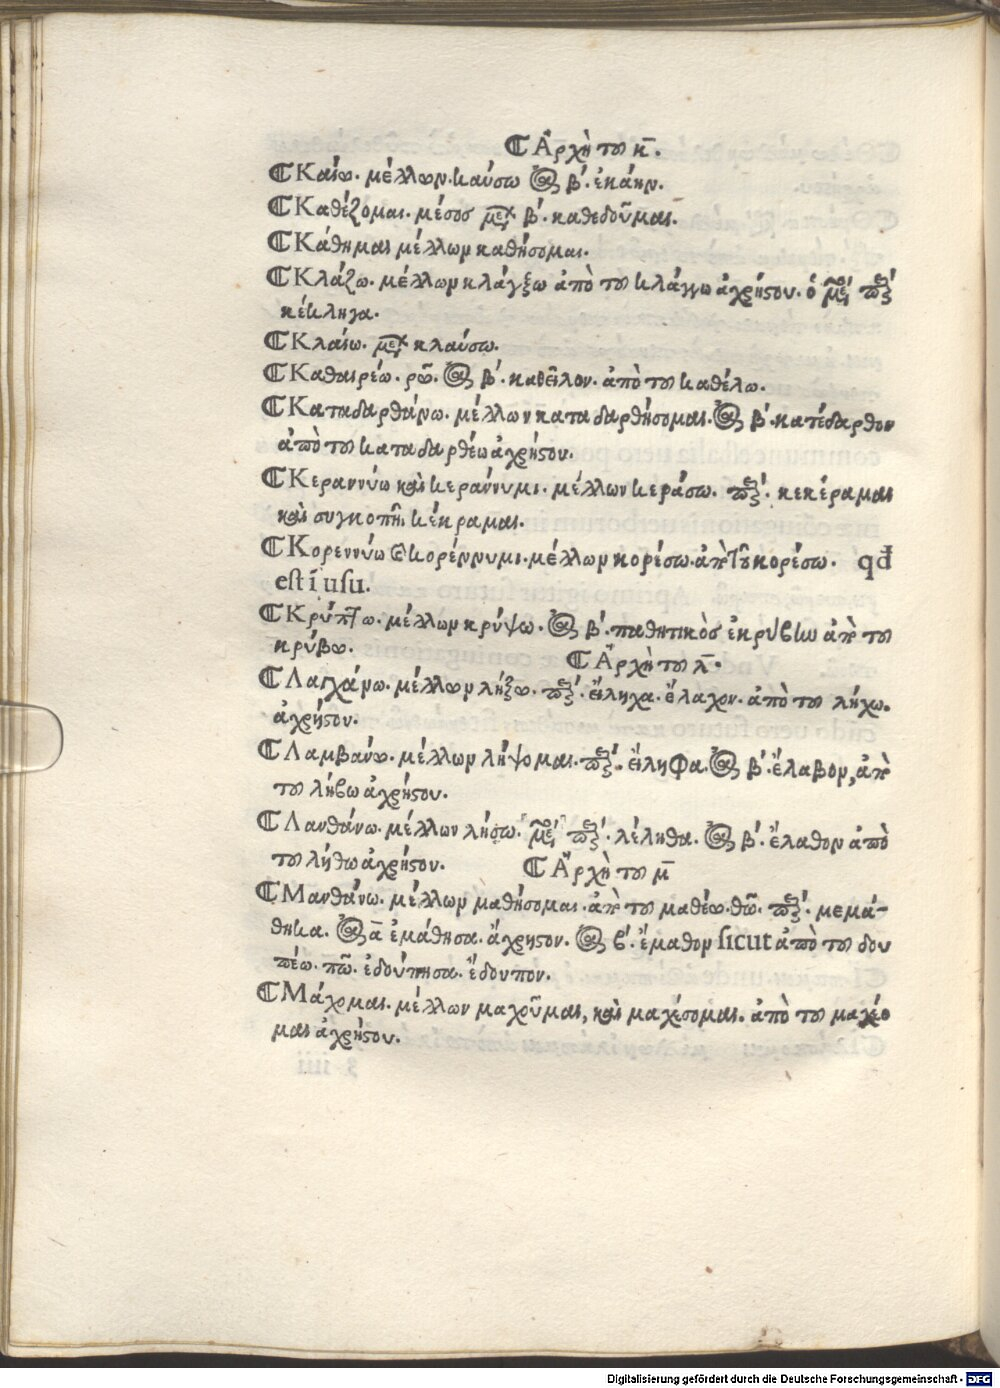 Ἀρχὴ τοῦ κ̄.
Καίω. μέλλων. καύσω β΄. ἐκάην.
Καθέζομαι. μέσος β΄. καθεδοῦμαι.
Κάθημαι μέλλων καθήσομαι.
Κλάζω. μέλλων κλάγξω ἀπὸ τοῦ κλάγγω ἀχρήστου. ὁ
κέκληγα.
Κλαίω. κλαύσω.
Καθαιρέω. ρῶ. β΄. καθεῖλον. ἀπὸ τοῦ καθέλω.
Καταδαρθάνω. μέλλων καταδαρθήσομαι. β΄. κατέδαρθον
ἀπὸ τοῦ καταδαρθέω ἀχρήστου.
Κεραννύω καὶ κεράννυμι. μέλλων κεράσω. κεκέραμαι
καὶ συγκοπῇ κέκραμαι.
Κορεννύω κορέννυμι. μέλλων κορέσω. κορέσω. qd̄
est ī usu.
Κρύπτω. μέλλων κρύψω. β΄. παθητικὸς ἐκρύβω τοῦ
κρύβω.
Ἀρχὴ τοῦ λ̄.
Λαγχάνω. μέλλων λήξω. εἴληχα. ἔλαχον. ἀπὸ τοῦ λήχω.
ἀχρήστου.
Λαμβάνω. μέλλων λήψομαι. εἴληφα. β΄. ἔλαβον,
τοῦ λήβω ἀχρήστου.
Λανθάνω. μέλλων λήσω. λέληθα. β΄. ἔλαθον ἀπὸ
τοῦ λήθω ἀχρήστου.
Ἀρχὴ τοῦ μ̄
Μανθάνω. μέλλων μαθήσομαι. τοῦ μαθέω. θῶ. μεμά-
θηκα. ᾱ ἐμάθησα. ἄχρηστον. β΄. ἔμαθον sicut ἀπὸ τοῦ δου
πέω. πῶ. ἐδούπησα. ἔδουπον.
Μάχομαι. μέλλων μαχοῦμαι, καὶ μαχέσομαι. ἀπὸ τοῦ μαχέο
μαι ἀχρήστου.
Digitalisierung gefördert durch die Deutsche Forschungsgemeinschaft - DFG